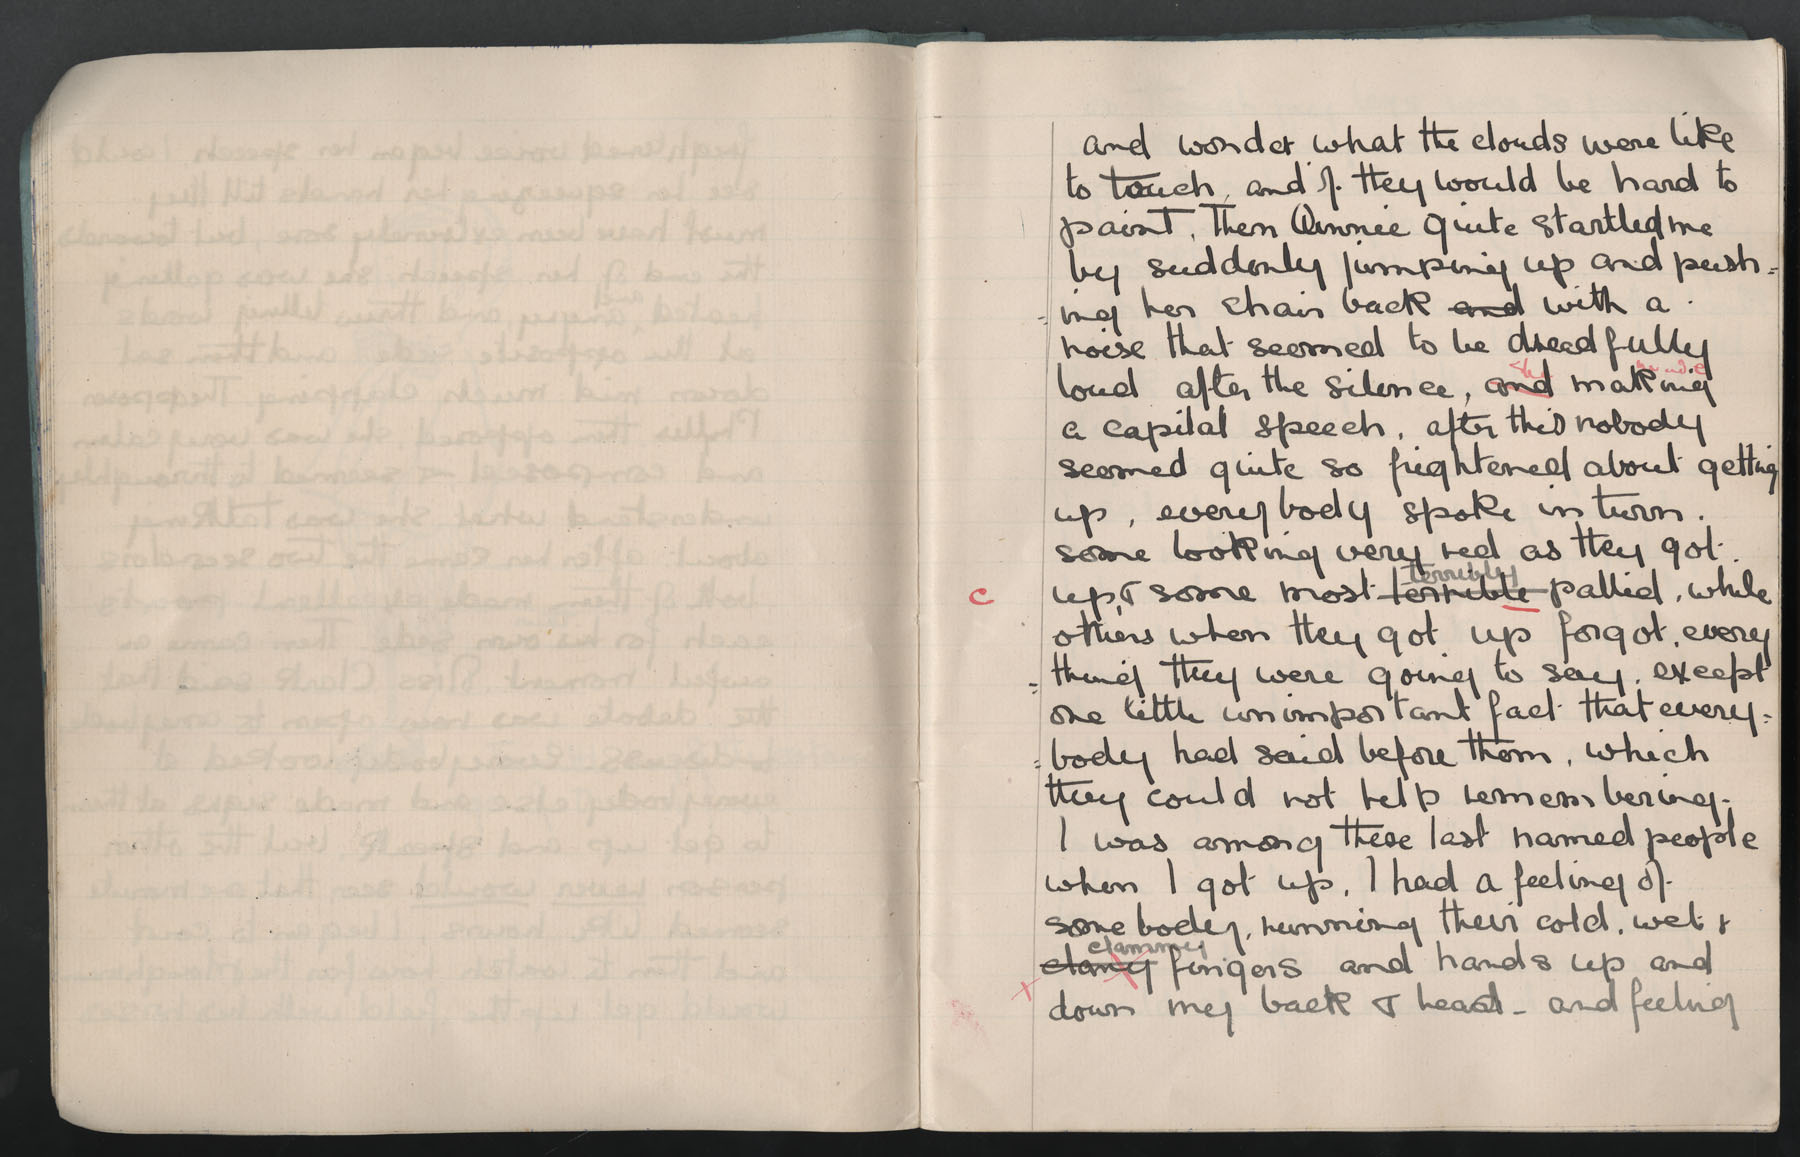 and wonder what the clouds were like
to touch, and if they would be hard to
paint, Then Winnie quite startled me
by suddenly jumping up and push=
=ing her chair back and with a
noise that seemed to be dreadfully
she made
loud after the silence, and making
a capital speech, after this nobody
seemed quite so frightened about getting
up, everybody spoke in turn.
some looking very red as they got
terribly
c up, & some most terrible pallid, while
others when they got up forgot, every
=thing they were going to say, except
one little unimportant fact that every=
=body had said before them, which
they could not help remembering.
I was among these last named people
when I got up, I had a feeling of
somebody, running their cold, wet &
clammy
x clamy fingers and hands up and
down my back & head - and feeling